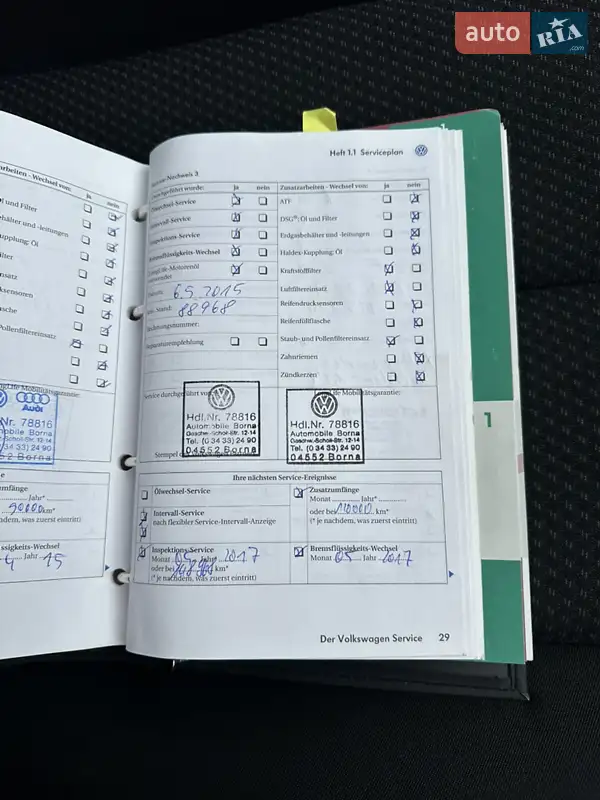 auto RIA
.com
Heft 1.1 Serviceplan
Service-Nachweis 3
durchgeführt wurde: ja nein
Zusatzarbeiten - Wechsel von: ja nein
Ölwechsel-Service
ATF
Intervall-Service
DSG®: Öl und Filter
Inspektions-Service
Erdgasbehälter und -leitungen
Bremsflüssigkeits-Wechsel
Haldex-Kupplung: Öl
LongLife-Motorenöl
Kraftstofffilter
Luftfiltereinsatz
6.5.2015
Reifendrucksensoren
88968
Reifenfüllflasche
Rechnungsnummer:
Staub- und Pollenfiltereinsatz
Reparaturempfehlung
Zahnriemen
Zündkerzen
Service durchgeführt von:
Hdl.Nr. 78816
Automobile Borna
Geschw.-Scholl-Str. 12-14
Tel. (0 34 33) 24 90
04552 Borna
Hdl.Nr. 78816
Automobile Borna
Geschw.-Scholl-Str. 12-14
Tel. (0 34 33) 24 90
04552 Borna
Ihre nächsten Service-Ereignisse
Ölwechsel-Service
Zusatzumfänge
Monat Jahr*
oder bei 110000 km*
(* je nachdem, was zuerst eintritt)
Intervall-Service
nach flexibler Service-Intervall-Anzeige
Inspektions-Service
Monat 05 Jahr* 2017
oder bei km*
(* je nachdem, was zuerst eintritt)
Bremsflüssigkeits-Wechsel
Monat 05 Jahr 2017
Der Volkswagen Service 29
1
arbeiten - Wechsel von: ja nein
und Filter
hälter und -leitungen
upplung: Öl
insatz
sensoren
lasche
Pollenfiltereinsatz
Mobilitätsgarantie:
Audi
.Nr. 78816
omobile Borna
w.-Scholl-Str. 12-14
34 33) 24 90
52 Borna
umfänge
Jahr*
90000 km*
hdem, was zuerst eintritt)
ssigkeits-Wechsel
4 Jahr 15